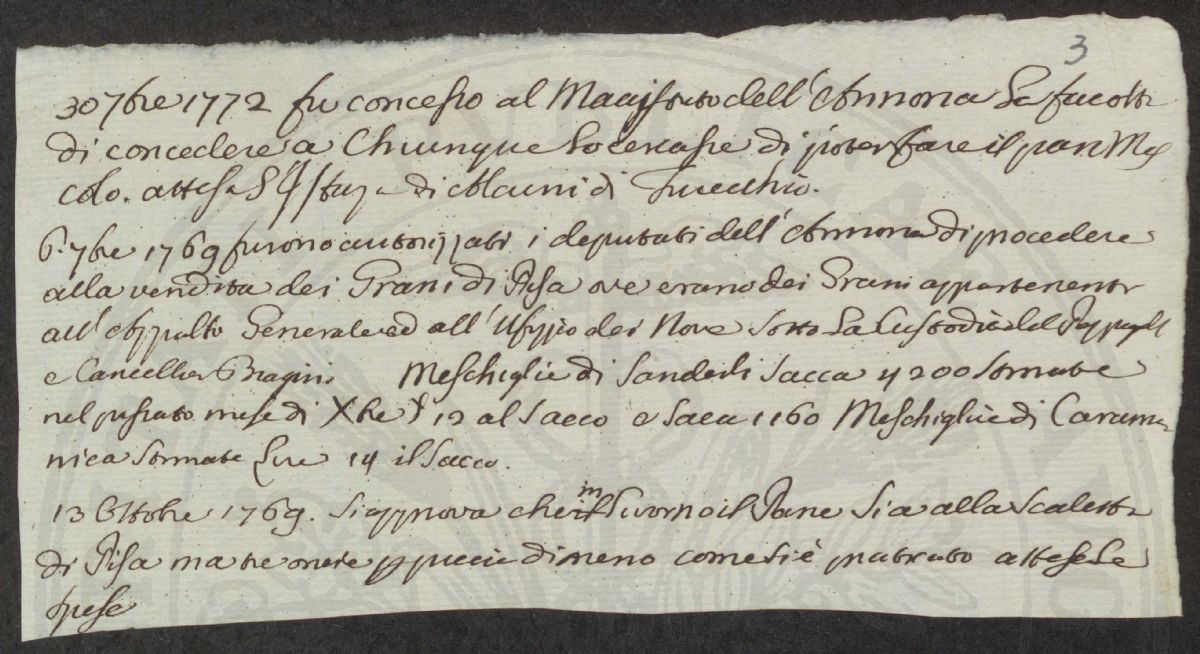 3
30 7bre 1772 fu concesso al Magistrato dell' Annona La facoltà
di concedere a Chiunque Lo cercasse di poter fare il pan Me
colo. attesa di Alcuni di Fucecchio.
6. 7bre 1769 furono autorizzati i deputati dell' Annona di procedere
alla vendita dei Grani di Pisa ove erano dei Grani appartenenti
all' Appalto Generale ed all' Ufizio dei Nove Sotto La Custodia del
e Cancellier Meschiglie di Sanderli Sacca 4200 Stimate
nel passato mese di Xbre 12 al Sacco e Sacca 1160 Meschiglie di Caram=
nica Stimate Lire 14 il Sacco.
13 Ottobre 1769. Si approva che in Livorno il Pane Sia alla Scaletta
di Pisa ma tre oncie di meno come si è praticato attese Le
spese